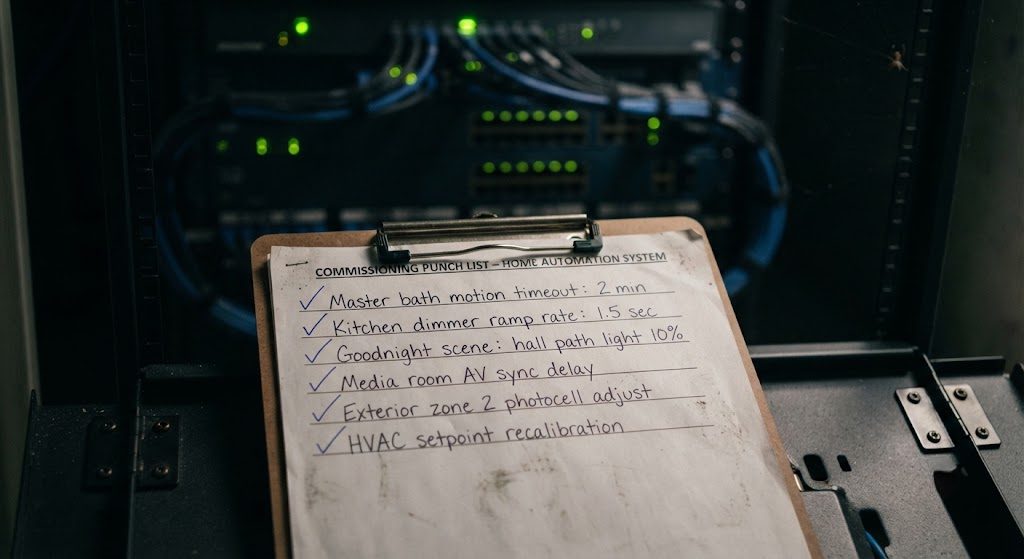 COMMISSIONING PUNCH LIST – HOME AUTOMATION SYSTEM
✓ Master bath motion timeout: 2 min
✓ Kitchen dimmer ramp rate: 1.5 sec
✓ Goodnight scene: hall path light 10%
✓ Media room AV sync delay
✓ Exterior zone 2 photocell adjust
✓ HVAC setpoint recalibration